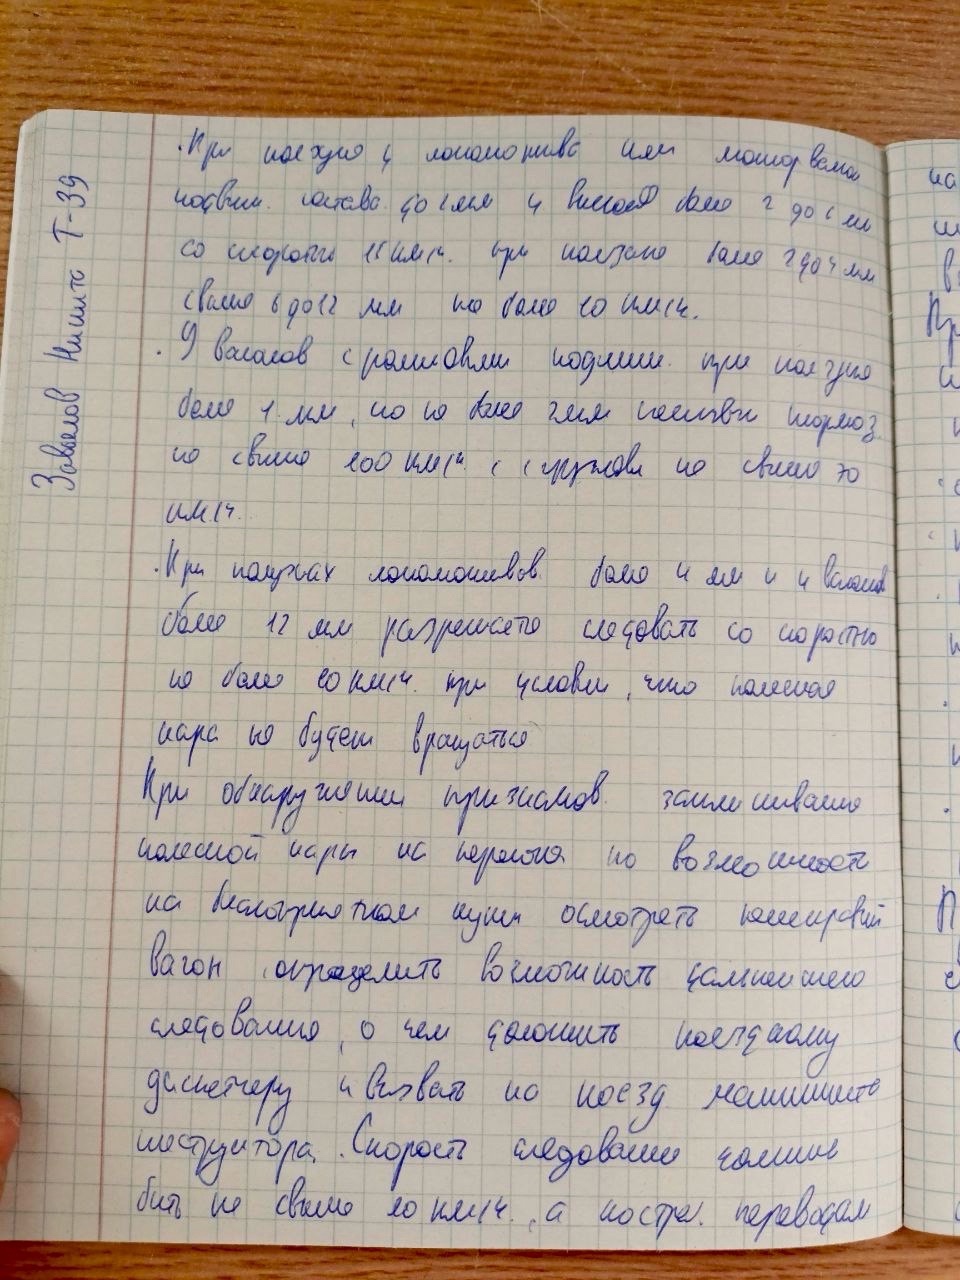 Завьялов Никита Т-39
.При ползуне у локомотива или моторвагон
подвиж. состава до 1 мм и вагонов более 2 до 6 мм
со скоростью 15 км/ч. при ползуне более 2 до 4 мм
свыше 6 до 12 мм не более 10 км/ч.
. У вагонов с роликовыми подшип. при ползуне
более 1 мм, но не более 2 мм тормоз.
не свыше 100 км/ч. с грузовы не свыше 70
км/ч.
.При ползунах локомотивов более 4 мм и у вагонов
более 12 мм разрешается следовать со скоростью
не более 10 км/ч. при условии, что колесная
пара не будет вращаться
При обнаружении признаков заклинивания
колесной пары на перегоне по возможности
на благоприятном пути осмотреть
вагон определить возможность дальнейшего
следования, о чем доложить поездному
диспетчеру и вызвать на поезд машиниста
инструктора. Скорость следования должна
быть не свыше 10 км/ч., а по стрел. переводам
на
Пр
П